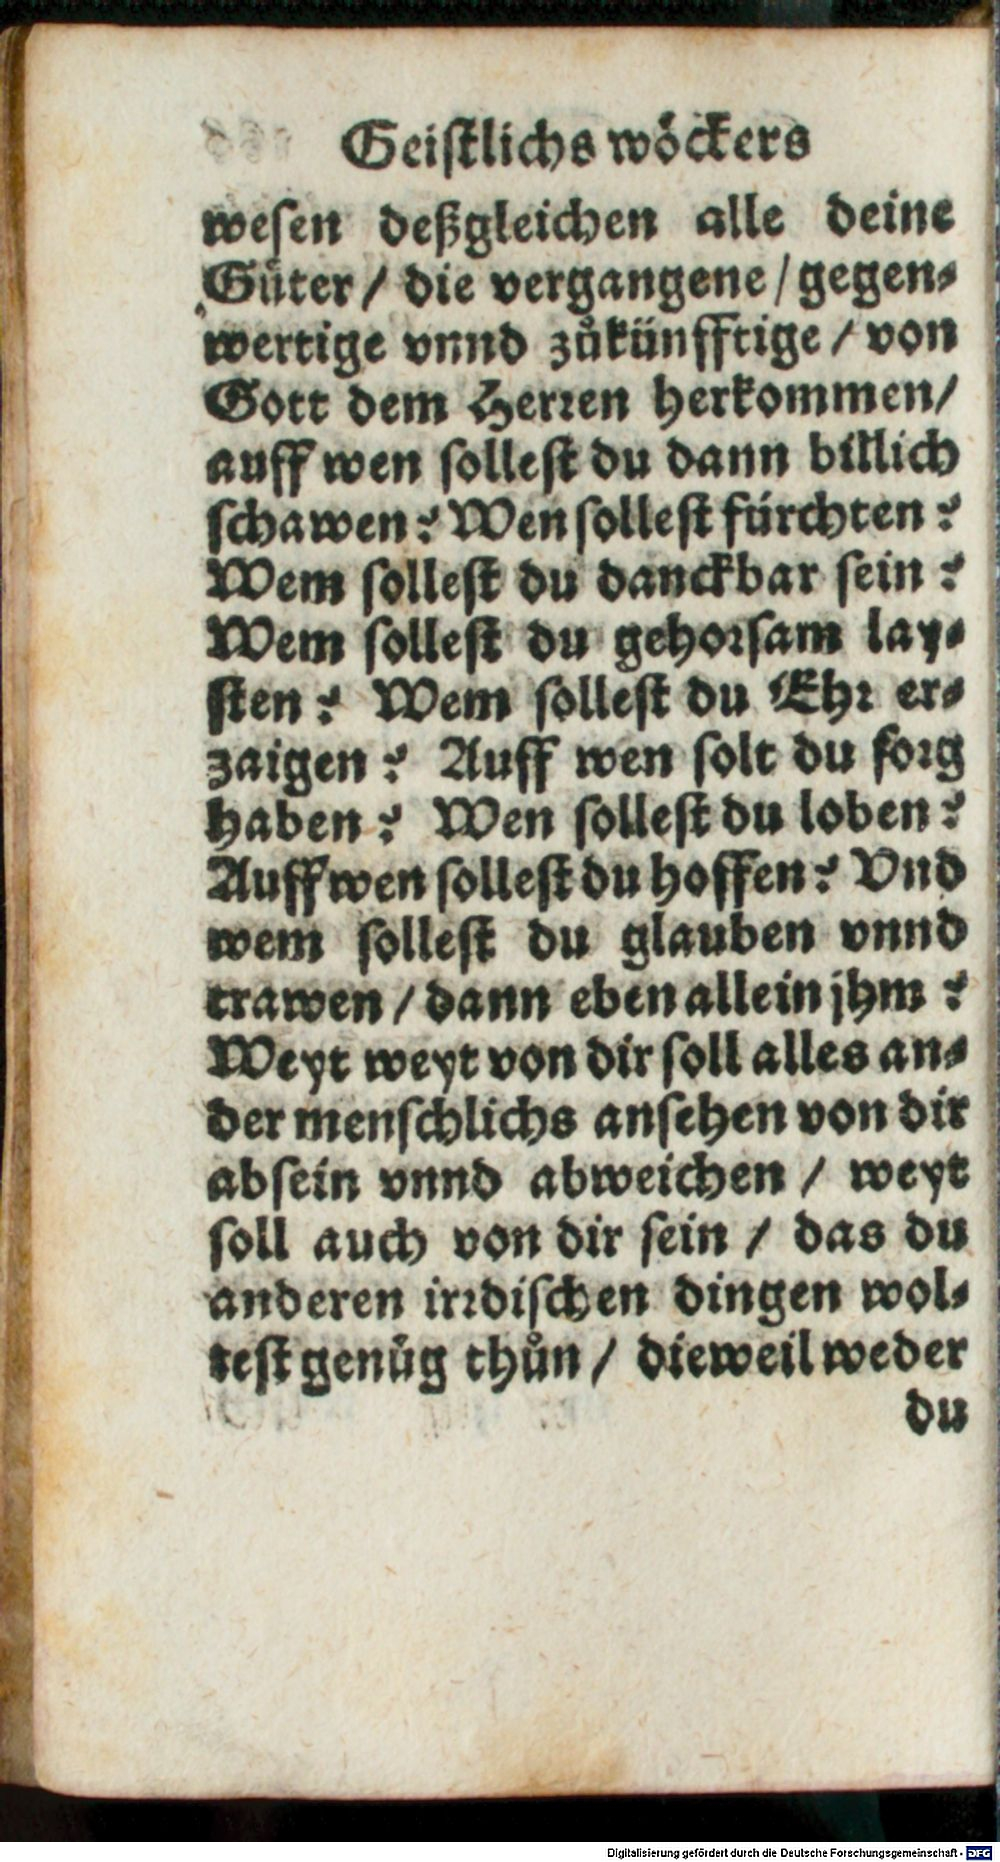 Geistlichs wöckers
wesen deßgleichen alle deine
Güter / die vergangene / gegen⸗
wertige vnnd zůkünfftige / von
Gott dem Herꝛen herkommen /
auff wen sollest du dann billich
schawen? Wen sollest fürchten?
Wem sollest du danckbar sein?
Wem sollest du gehoꝛsam lay⸗
sten? Wem sollest du Ehꝛ er⸗
zaigen? Auff wen solt du soꝛg
haben? Wen sollest du loben?
Auff wen sollest du hoffen? Vnd
wem sollest du glauben vnnd
trawen / dann eben allein jhm?
Weyt weyt von dir soll alles an⸗
der menschlichs ansehen von dir
absein vnnd abweichen / weyt
soll auch von dir sein / das du
anderen irꝛdischen dingen wol⸗
test genůg thůn / dieweil weder
du
Digitalisierung gefördert durch die Deutsche Forschungsgemeinschaft - DFG